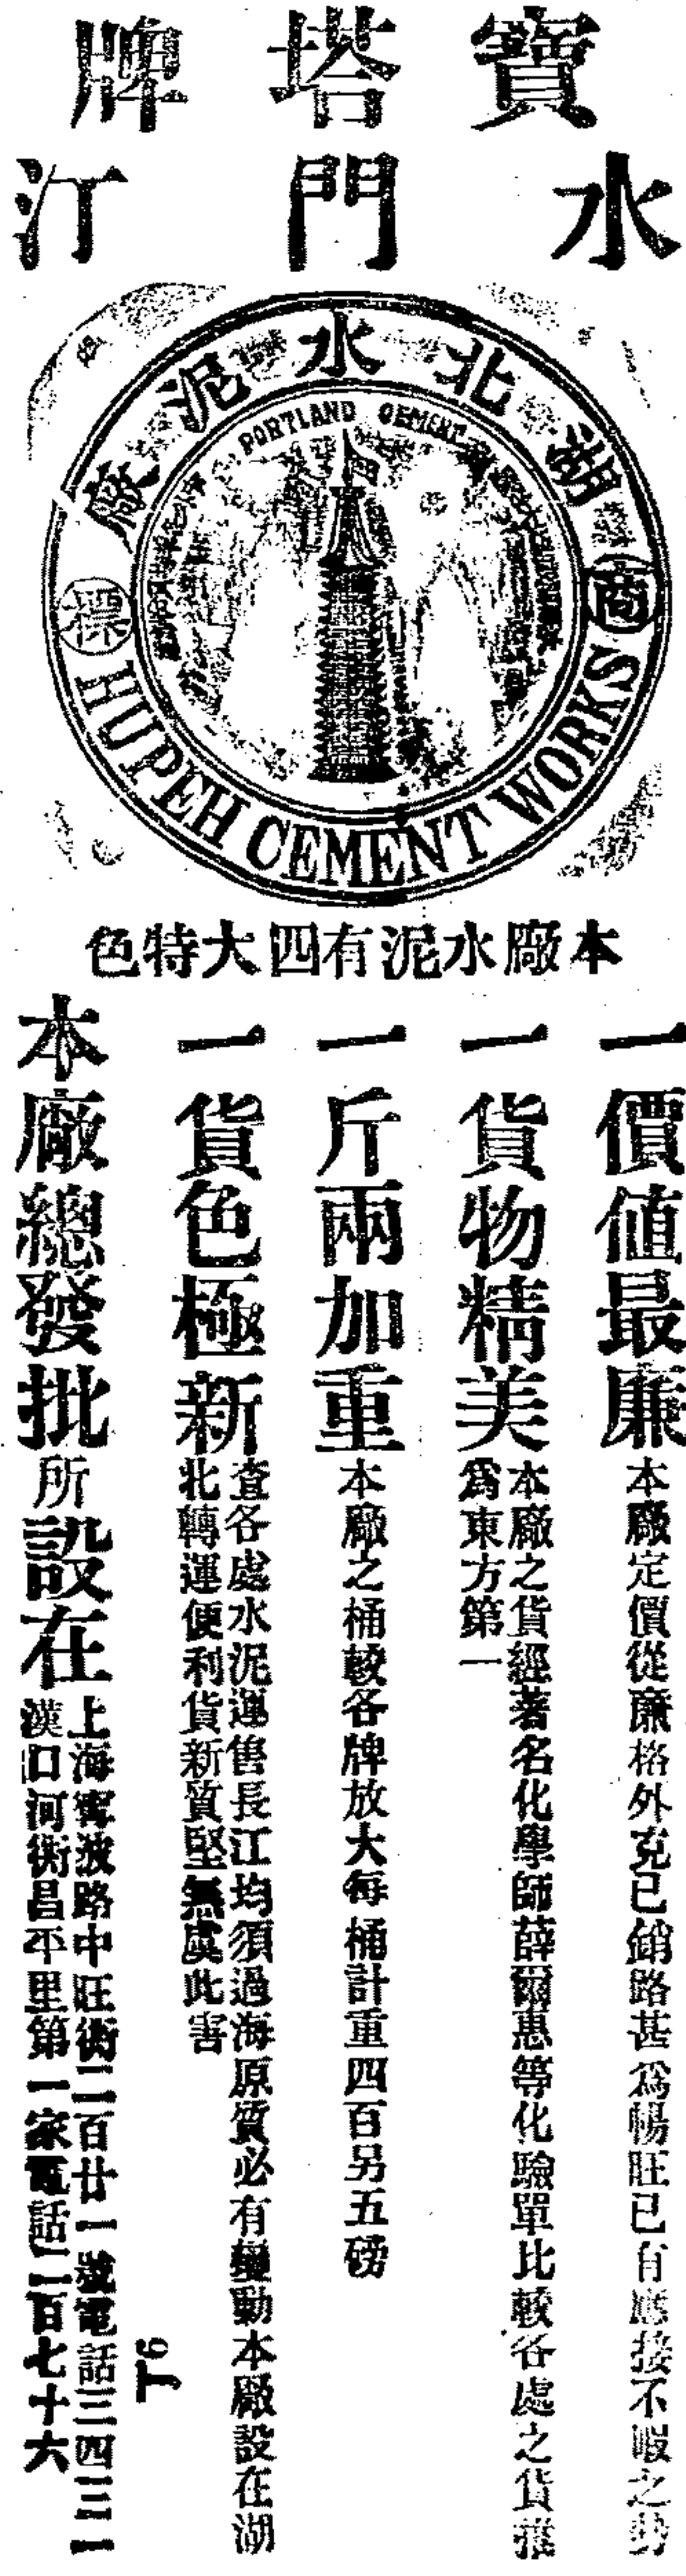 寶塔牌
水門汀
湖北水泥廠
PORTLAND CEMENT
商標
HUPEH CEMENT WORKS
本廠水泥有四大特色
一價值最廉
本廠定價從廉格外克已銷路甚爲暢旺已有應接不暇之勢
一貨物精美
本廠之貨經著名化學師薛爾惠等化驗單比較各處之貨推
爲東方第一
一斤兩加重
本廠之桶較各牌放大每桶計重四百另五磅
一貨色極新
查各處水泥運售長江均須過海原質必有變動本廠設在湖
北轉運便利貨新質堅無虞此害
T6
本廠總發批所設在
上海寧波路中旺衖二百廿一號電話三四三一
漢口河街昌平里第一家電話二百七十六